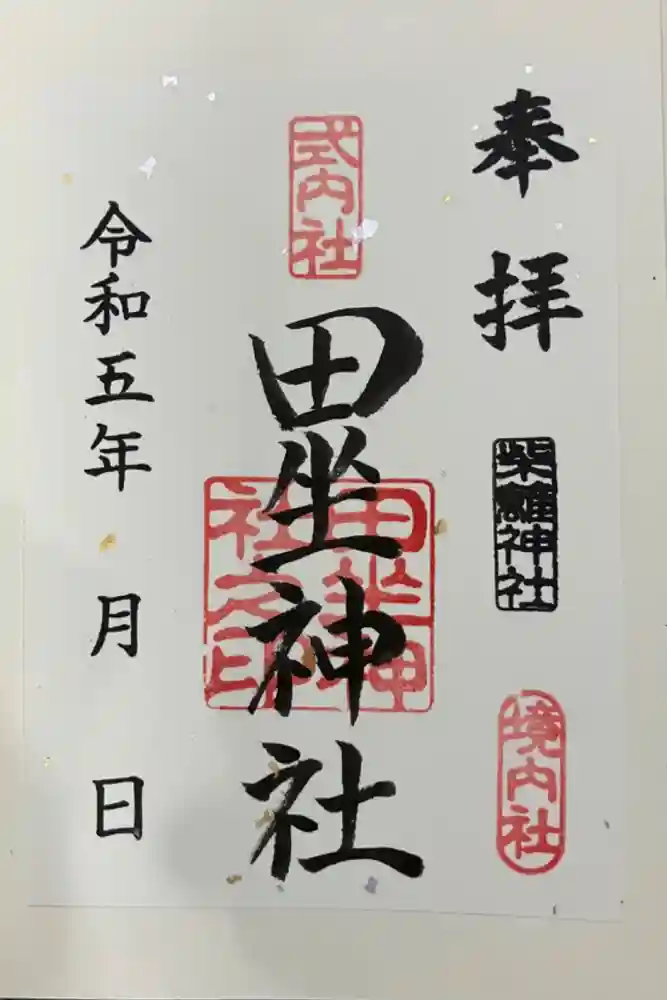 奉拝
柴籬神社
境内社
式内社
田坐神社
田坐神
社之印
令和五年 月 日